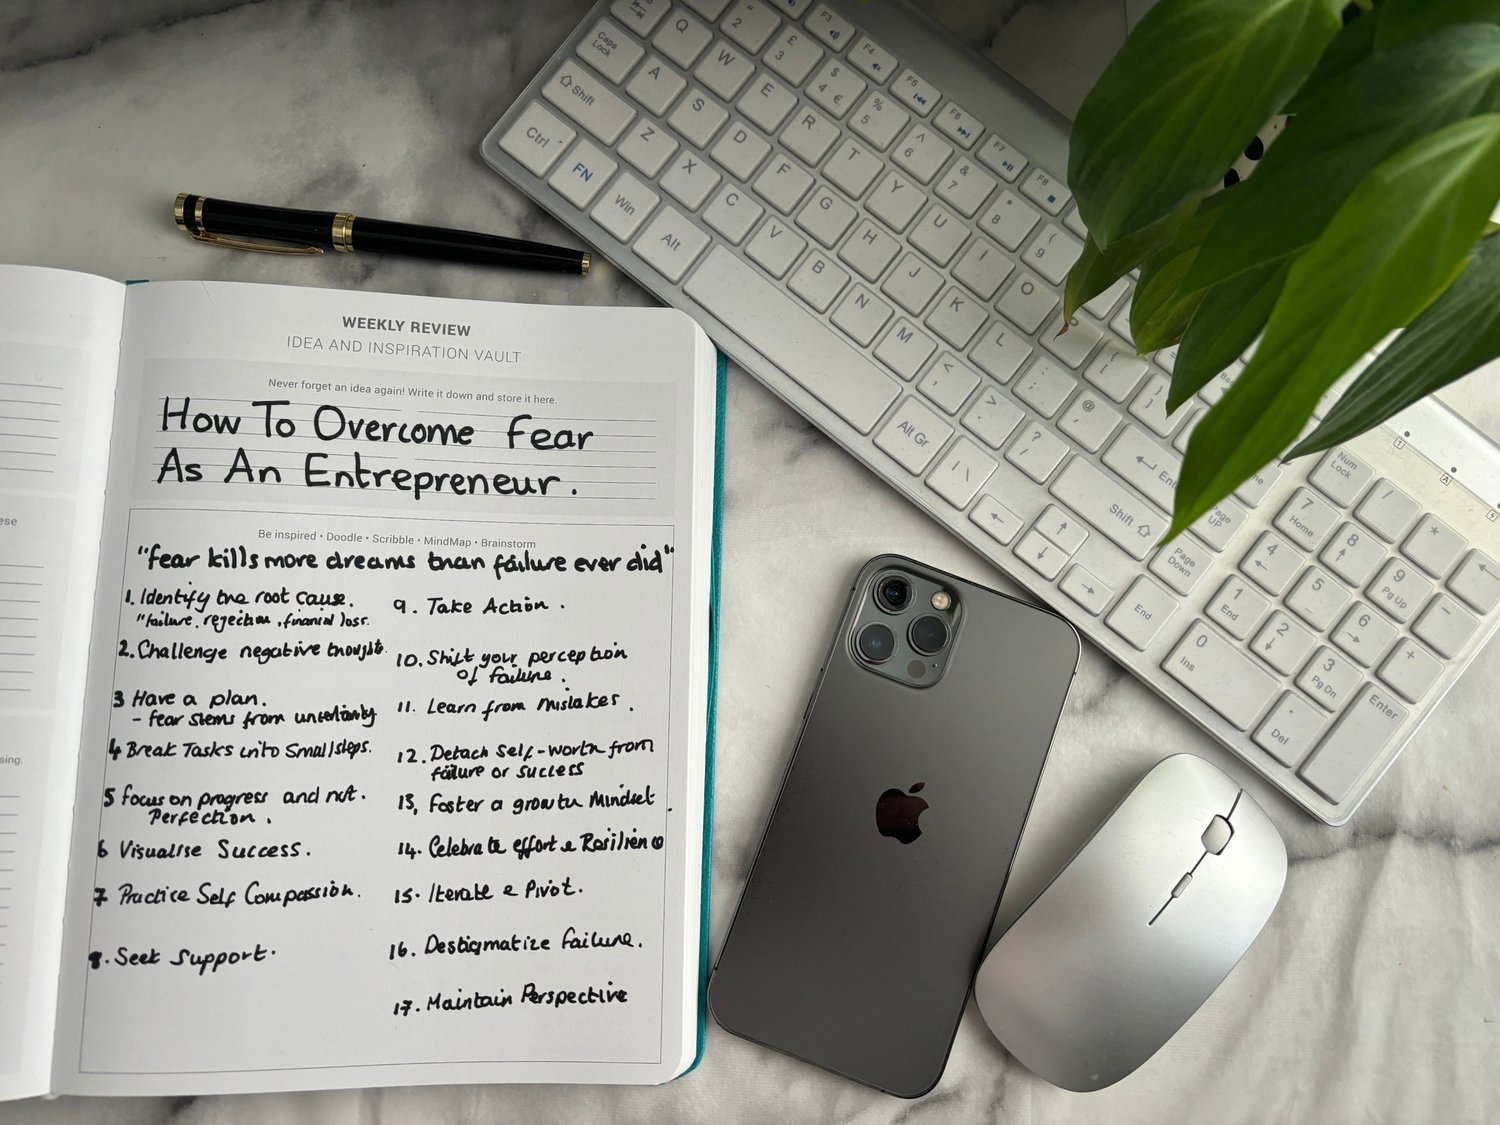 WEEKLY REVIEW
IDEA AND INSPIRATION VAULT
Never forget an idea again! Write it down and store it here.
How To Overcome Fear
As An Entrepreneur.
Be inspired • Doodle • Scribble • MindMap • Brainstorm
"fear kills more dreams than failure ever did"
1. Identify the root cause.
"failure, rejection, financial loss.
2. Challenge negative thoughts.
3 Have a plan.
- fear stems from uncertainty
4 Break Tasks into Small steps.
5 focus on progress and not.
Perfection.
6 Visualise Success.
7 Practice Self Compassion.
8. Seek Support.
9. Take Action.
10. Shift your perception
of failure.
11. Learn from mistakes.
12. Detach self-worth from
failure or success
13, Foster a growth Mindset.
14. Celebrate effort &
15. Iterate & Pivot.
16. Destigmatize failure.
17. Maintain Perspective
ese
sing.
F3
F4
F5
F6
F7
F8
Caps Lock
Q
W
E
R
T
Y
U
I
O
P
" 2
£ 3
$ 4 €
% 5
^ 6
& 7
* 8
( 9
A
S
D
F
G
H
J
K
L
: ;
@
Enter
Shift
Z
X
C
V
B
N
M
< ,
> .
? /
Shift
Ctrl
FN
Win
Alt
Alt Gr
| \
Page Up
Page Down
End
Num Lock
/
*
7 Home
8
9 Pg Up
-
4
5
6
+
1 End
2
3 Pg Dn
Enter
0 Ins
. Del
1
A